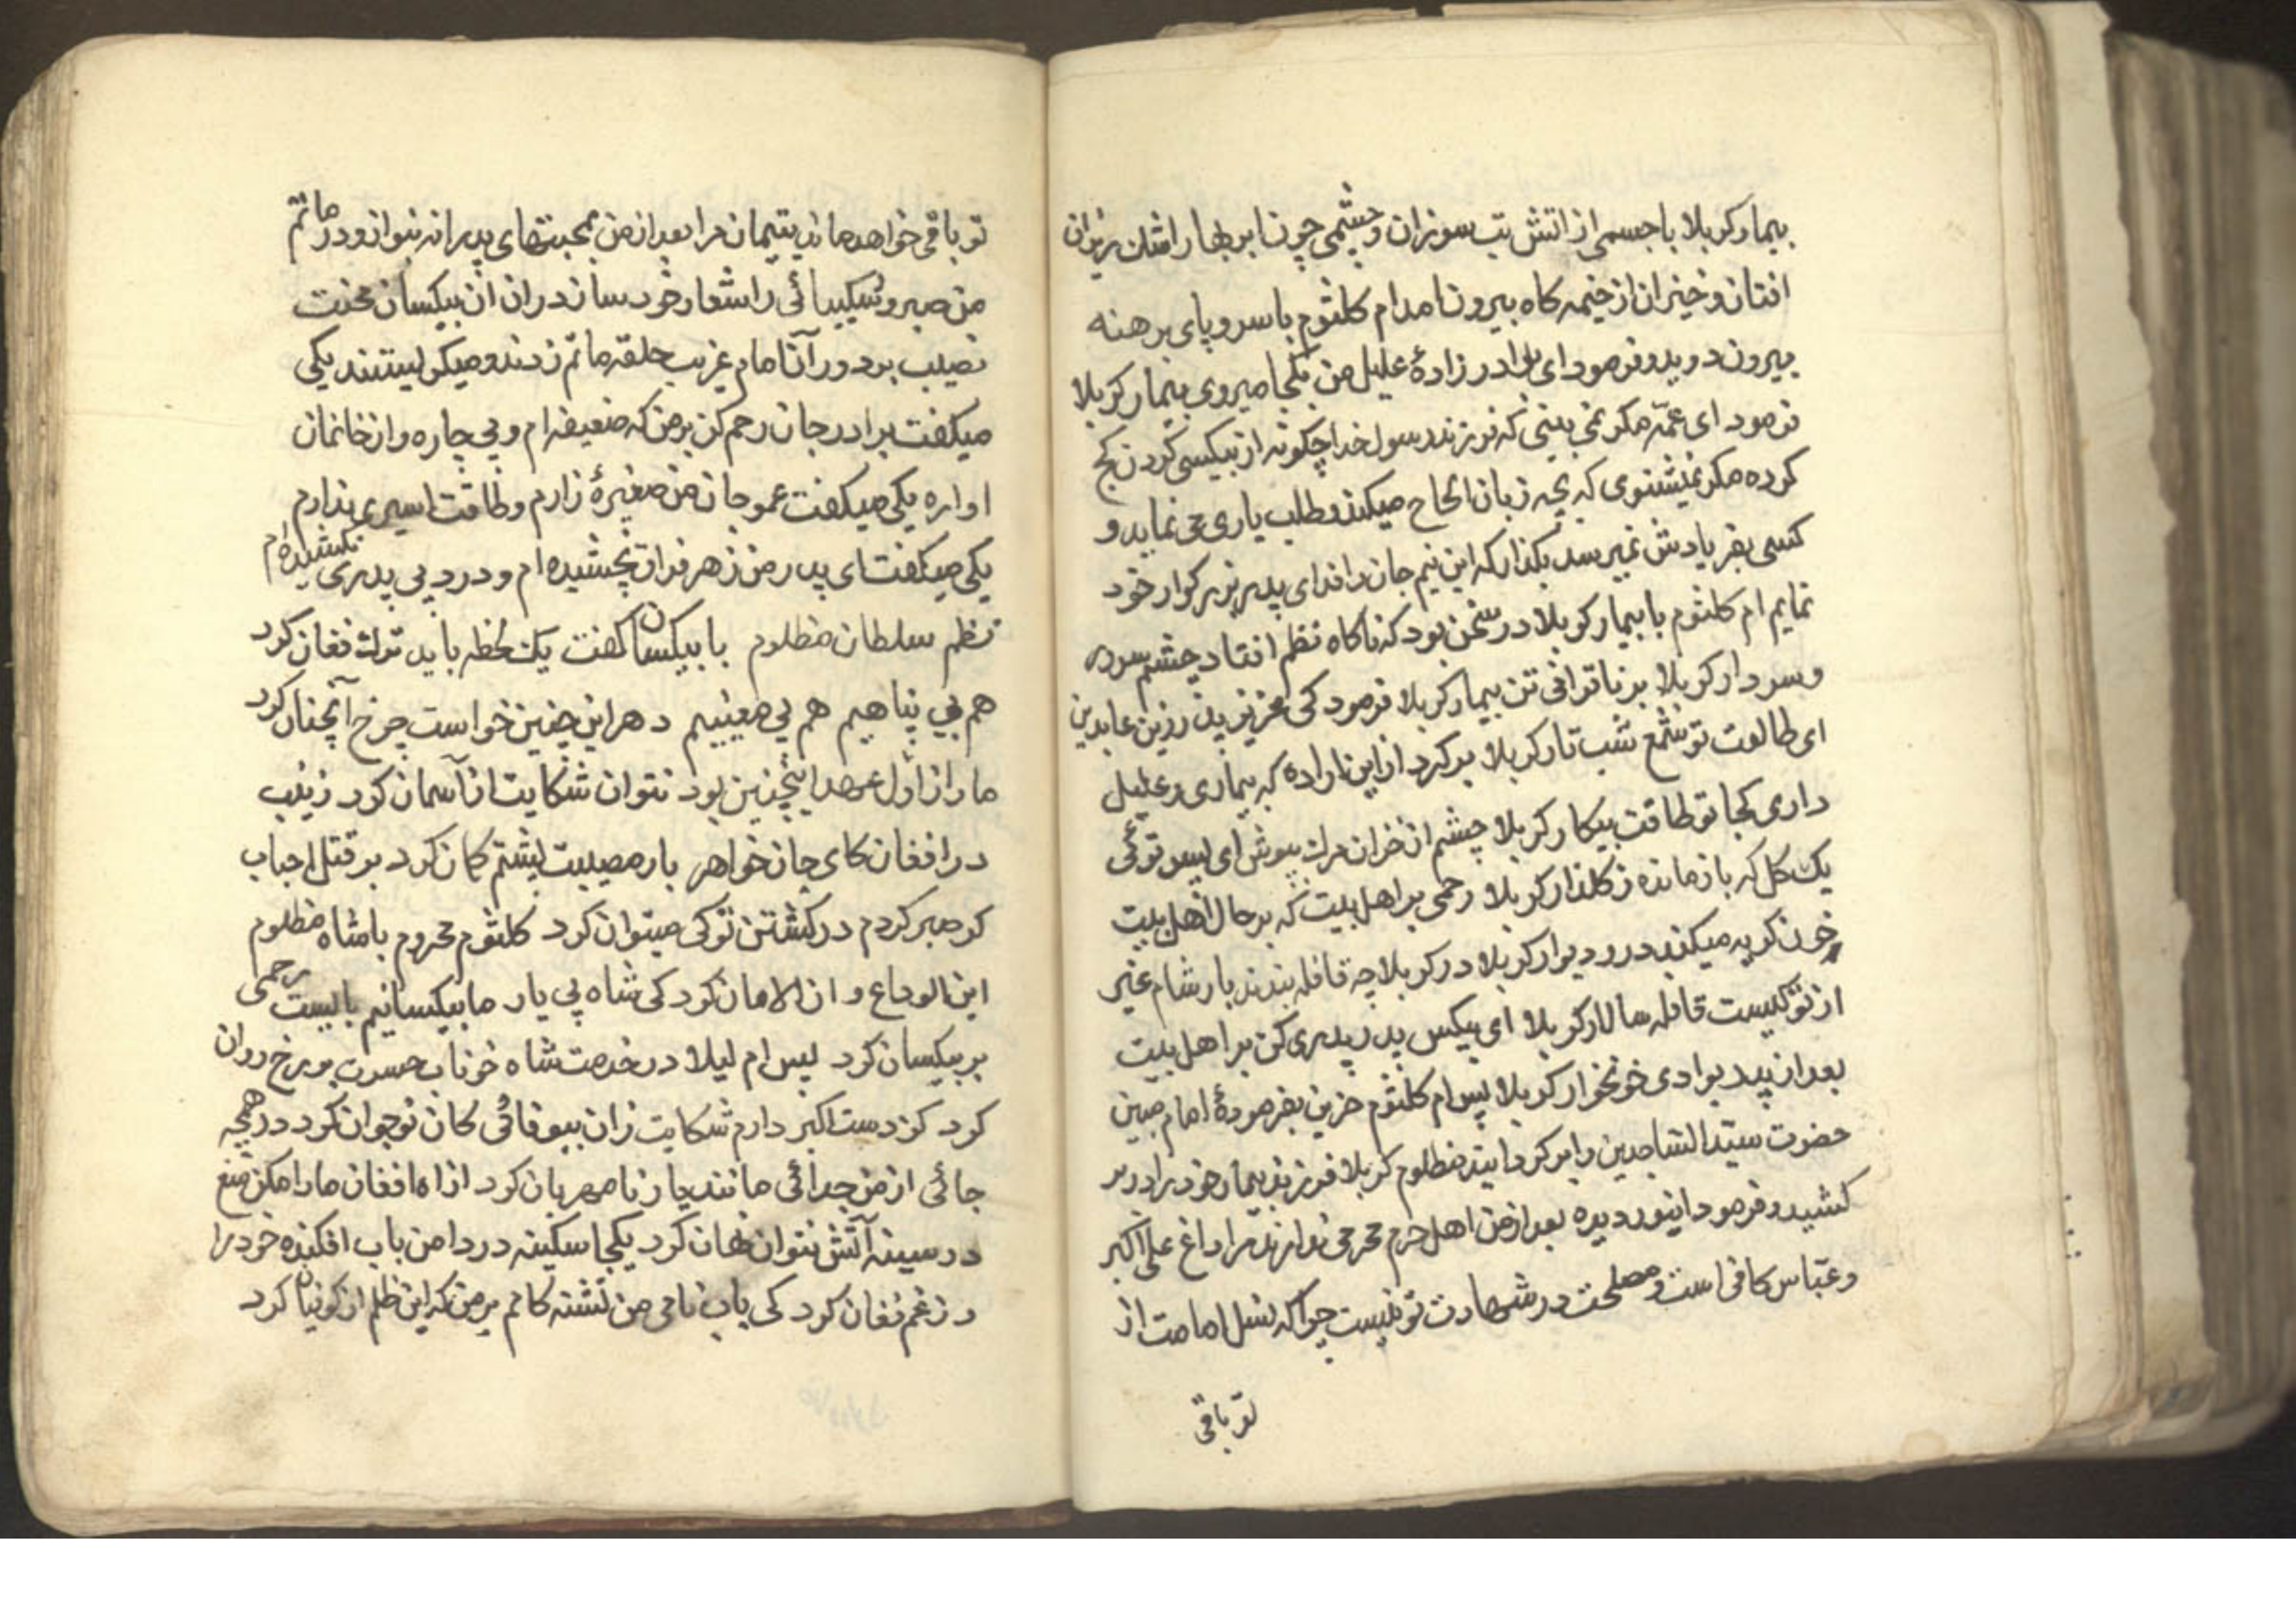 بیمار کربلا با جسمی از اتش تب سوزان و چشمی چون ابر بهار اشک ریزان
افتان و خیزان از خیمه کاه بیرون امد ام کلثوم با سر و پای برهنه
بیرون دوید و فرمود ای برادر زادهٔ علیل من بکجا میروی بیمار کربلا
فرمود ای عمّه مکر نمی بینی که فرزند رسول خدا چکونه از بیکسی کردن کج
کرده مکر نمیشنوی که بچه زبان الحاح میکند و طلب یاری می نماید و
کسی بفریادش نمیرسد بکذار که این نیم جان را فدای پدر بزرکوار خود
نمایم ام کلثوم با بیمار کربلا در سخن بود که ناکاه نظم افتاد چشم سرور
و سردار کربلا بر ناتوانی تن بیمار کربلا فرمود کی عزیز پدر زین عابدین
ای طالعت تو شمع شب تار کربلا برکرد از این اراده که بیماری و علیل
داری کجا تو طاقت پیکار کربلا چشم از خزان مرک بپوش ای پسر توئی
یک کل که باز مانده ز کلذار کربلا رحمی بر اهل بیت که بر حال اهل بیت
خون کریه میکند در و دیوار کربلا در کربلا چه قافله بندند بار شام غیر
از تو کیست قافله سالار کربلا ای بیکس پدر پدری کن بر اهل بیت
بعد از پدر بوادی خونخوار کربلا پس ام کلثوم حزین بفرمودهٔ امام مبین
حضرت سیّد الساجدین را برکردانید مظلوم کربلا فرزند بیمار خود را در بر
کشید و فرمود اینور دیده بعد از من اهل حرم محرمی ندارند مرا داغ علی اکبر
و عبّاس کافی است و مصلحت در شهادت تو نیست چرا که نسل امامت از
تو باقی
تو باقی خواهد ماند یتیمان مرا بعد از من بمحبتهای پدرانه بنواز و در ماتم
من صبر و شکیبائی را شعار خود ساز در ان ان بیکسان محنت
نصیب بر دور آن امام غریب حلقه ماتم زدند و میکریستند یکی
میکفت برادر جان رحم کن بر من که ضعیفه ام و بی چاره و از خانمان
اواره یکی میکفت عمو جان من صغیرهٔ زارم و طاقت اسیری ندارم
یکی میکفت ای پدر من زهر فراق نچشیده ام و درد بی پدری نکشیده ام
نظم سلطان مظلوم با بیکسان کفت یک لحظه باید ترک فغان کرد
هم بی پناهیم هم بی معینیم دهر این چنین خواست چرخ آنچنان کرد
ما را از اول عهد اینچنین بود نتوان شکایت از آسمان کرد زینب
در افغان کای جان خواهر بار مصیبت پشتم کمان کرد بر قتل احباب
کر صبر کردم در کشتن تو کی میتوان کرد کلثوم محروم با شاه مظلوم
این الوداع و ان الامان کرد کی شاه بی یار ما بیکسانیم بایست رحمی
بر بیکسان کرد پس ام لیلا در خدمت شاه خوناب حسرت بر رخ روان
کرد کز دست اکبر دارم شکایت زان بیوفائی کان نوجوان کرد در همچه
جائی از من جدائی مانند یار نامهربان کرد از اه افغان ما را مکن منع
در سینه آتش نتوان نهان کرد یکجا سکینه در دامن باب افکنده خود را
در زغم فغان کرد کی باب نامی من تشنه کامم بر من که این ظلم از کوفیان کرد